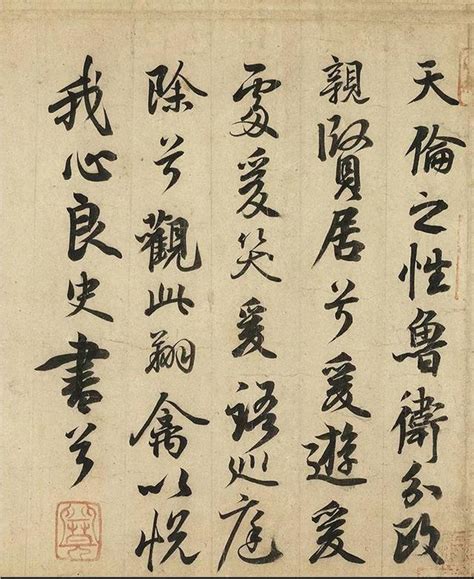 天倫之性魯衛分政
親賢居兮爰遊爰
處爰笑爰語巡庭
除兮觀此翔禽以悅
我心良史書兮